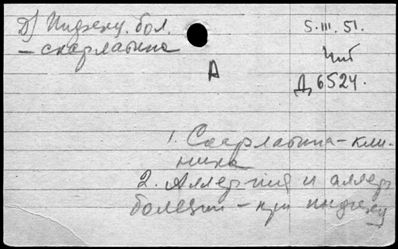 Д) Инфекц. бол.
– скарлатина
5. III. 51.
Чит
А
Д 6524.
1. Скарлатина – кли-
ника
2. Аллергия и аллерг.
болезни – при инфекц